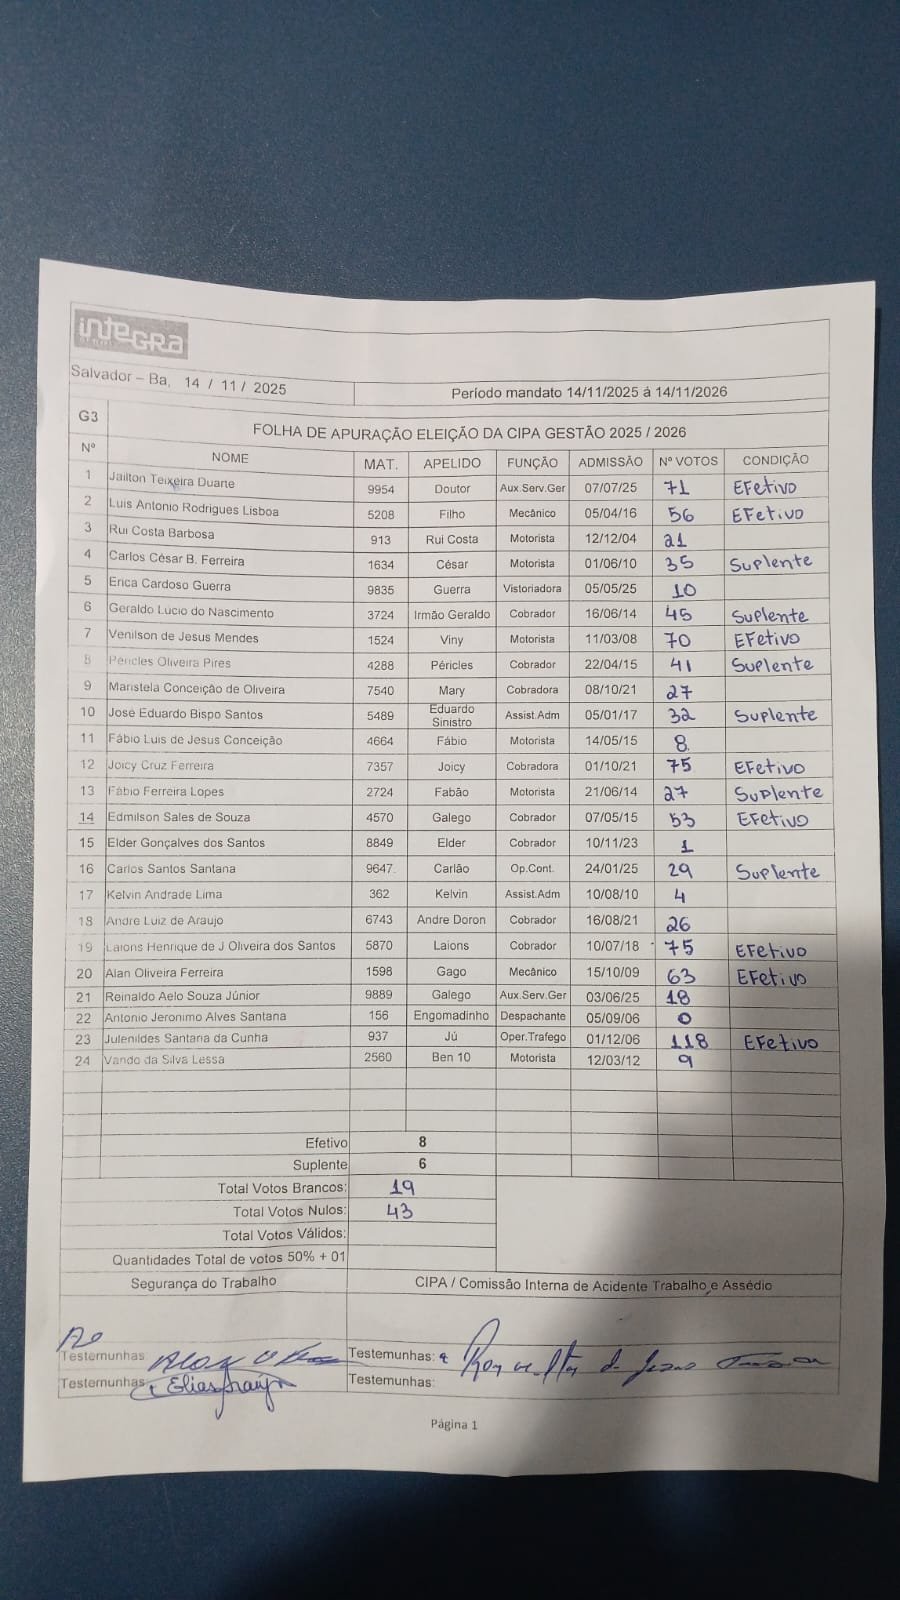 integra
Salvador – Ba, 14 / 11 / 2025 Período mandato 14/11/2025 á 14/11/2026
G3 FOLHA DE APURAÇÃO ELEIÇÃO DA CIPA GESTÃO 2025 / 2026
Nº NOME MAT. APELIDO FUNÇÃO ADMISSÃO Nº VOTOS CONDIÇÃO
1 Jailton Teixeira Duarte 9954 Doutor Aux.Serv.Ger 07/07/25 71 Efetivo
2 Luis Antonio Rodrigues Lisboa 5208 Filho Mecânico 05/04/16 56 Efetivo
3 Rui Costa Barbosa 913 Rui Costa Motorista 12/12/04 21
4 Carlos César B. Ferreira 1634 César Motorista 01/06/10 35 Suplente
5 Erica Cardoso Guerra 9835 Guerra Vistoriadora 05/05/25 10
6 Geraldo Lucio do Nascimento 3724 Irmão Geraldo Cobrador 16/06/14 45 Suplente
7 Venilson de Jesus Mendes 1524 Viny Motorista 11/03/08 70 Efetivo
8 Péricles Oliveira Pires 4288 Péricles Cobrador 22/04/15 41 Suplente
9 Maristela Conceição de Oliveira 7540 Mary Cobradora 08/10/21 27
10 José Eduardo Bispo Santos 5489 Eduardo Sinistro Assist.Adm 05/01/17 32 Suplente
11 Fábio Luis de Jesus Conceição 4664 Fábio Motorista 14/05/15 8
12 Joicy Cruz Ferreira 7357 Joicy Cobradora 01/10/21 75 Efetivo
13 Fábio Ferreira Lopes 2724 Fabão Motorista 21/06/14 27 Suplente
14 Edmilson Sales de Souza 4570 Galego Cobrador 07/05/15 53 Efetivo
15 Elder Gonçalves dos Santos 8849 Elder Cobrador 10/11/23 1
16 Carlos Santos Santana 9647 Carlão Op.Cont. 24/01/25 29 Suplente
17 Kelvin Andrade Lima 362 Kelvin Assist.Adm 10/08/10 4
18 Andre Luiz de Araujo 6743 Andre Doron Cobrador 16/08/21 26
19 Laions Henrique de J Oliveira dos Santos 5870 Laions Cobrador 10/07/18 75 Efetivo
20 Alan Oliveira Ferreira 1598 Gago Mecânico 15/10/09 63 Efetivo
21 Reinaldo Aelo Souza Júnior 9889 Galego Aux.Serv.Ger 03/06/25 18
22 Antonio Jeronimo Alves Santana 156 Engomadinho Despachante 05/09/06 0
23 Julenildes Santana da Cunha 937 Jú Oper.Trafego 01/12/06 118 Efetivo
24 Vando da Silva Lessa 2560 Ben 10 Motorista 12/03/12 9
Efetivo 8
Suplente 6
Total Votos Brancos: 19
Total Votos Nulos: 43
Total Votos Válidos:
Quantidades Total de votos 50% + 01
Segurança do Trabalho CIPA / Comissão Interna de Acidente Trabalho e Assédio
Testemunhas: Testemunhas:
Testemunhas: Elias Araújo Testemunhas:
Página 1